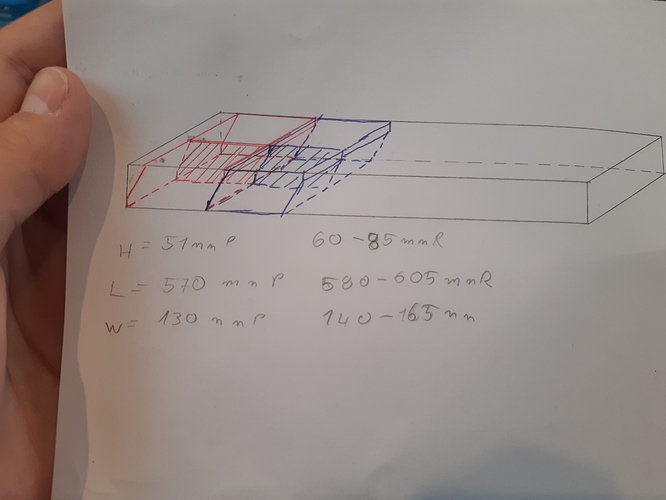 H = 51 mm P 60 - 85 mm R
L = 570 mm P 580 - 605 mm R
W = 130 mm P 140 - 165 mm